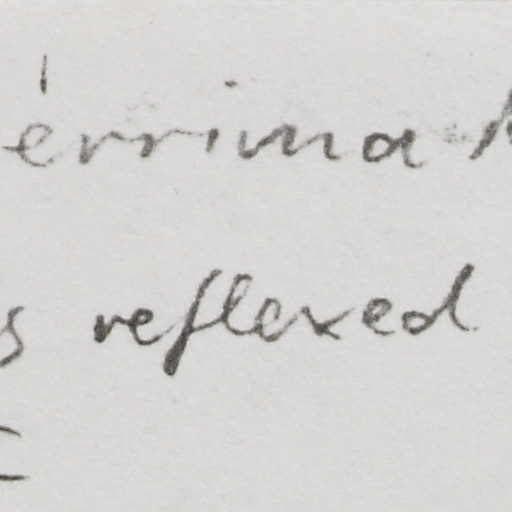 érrima
s reflexed